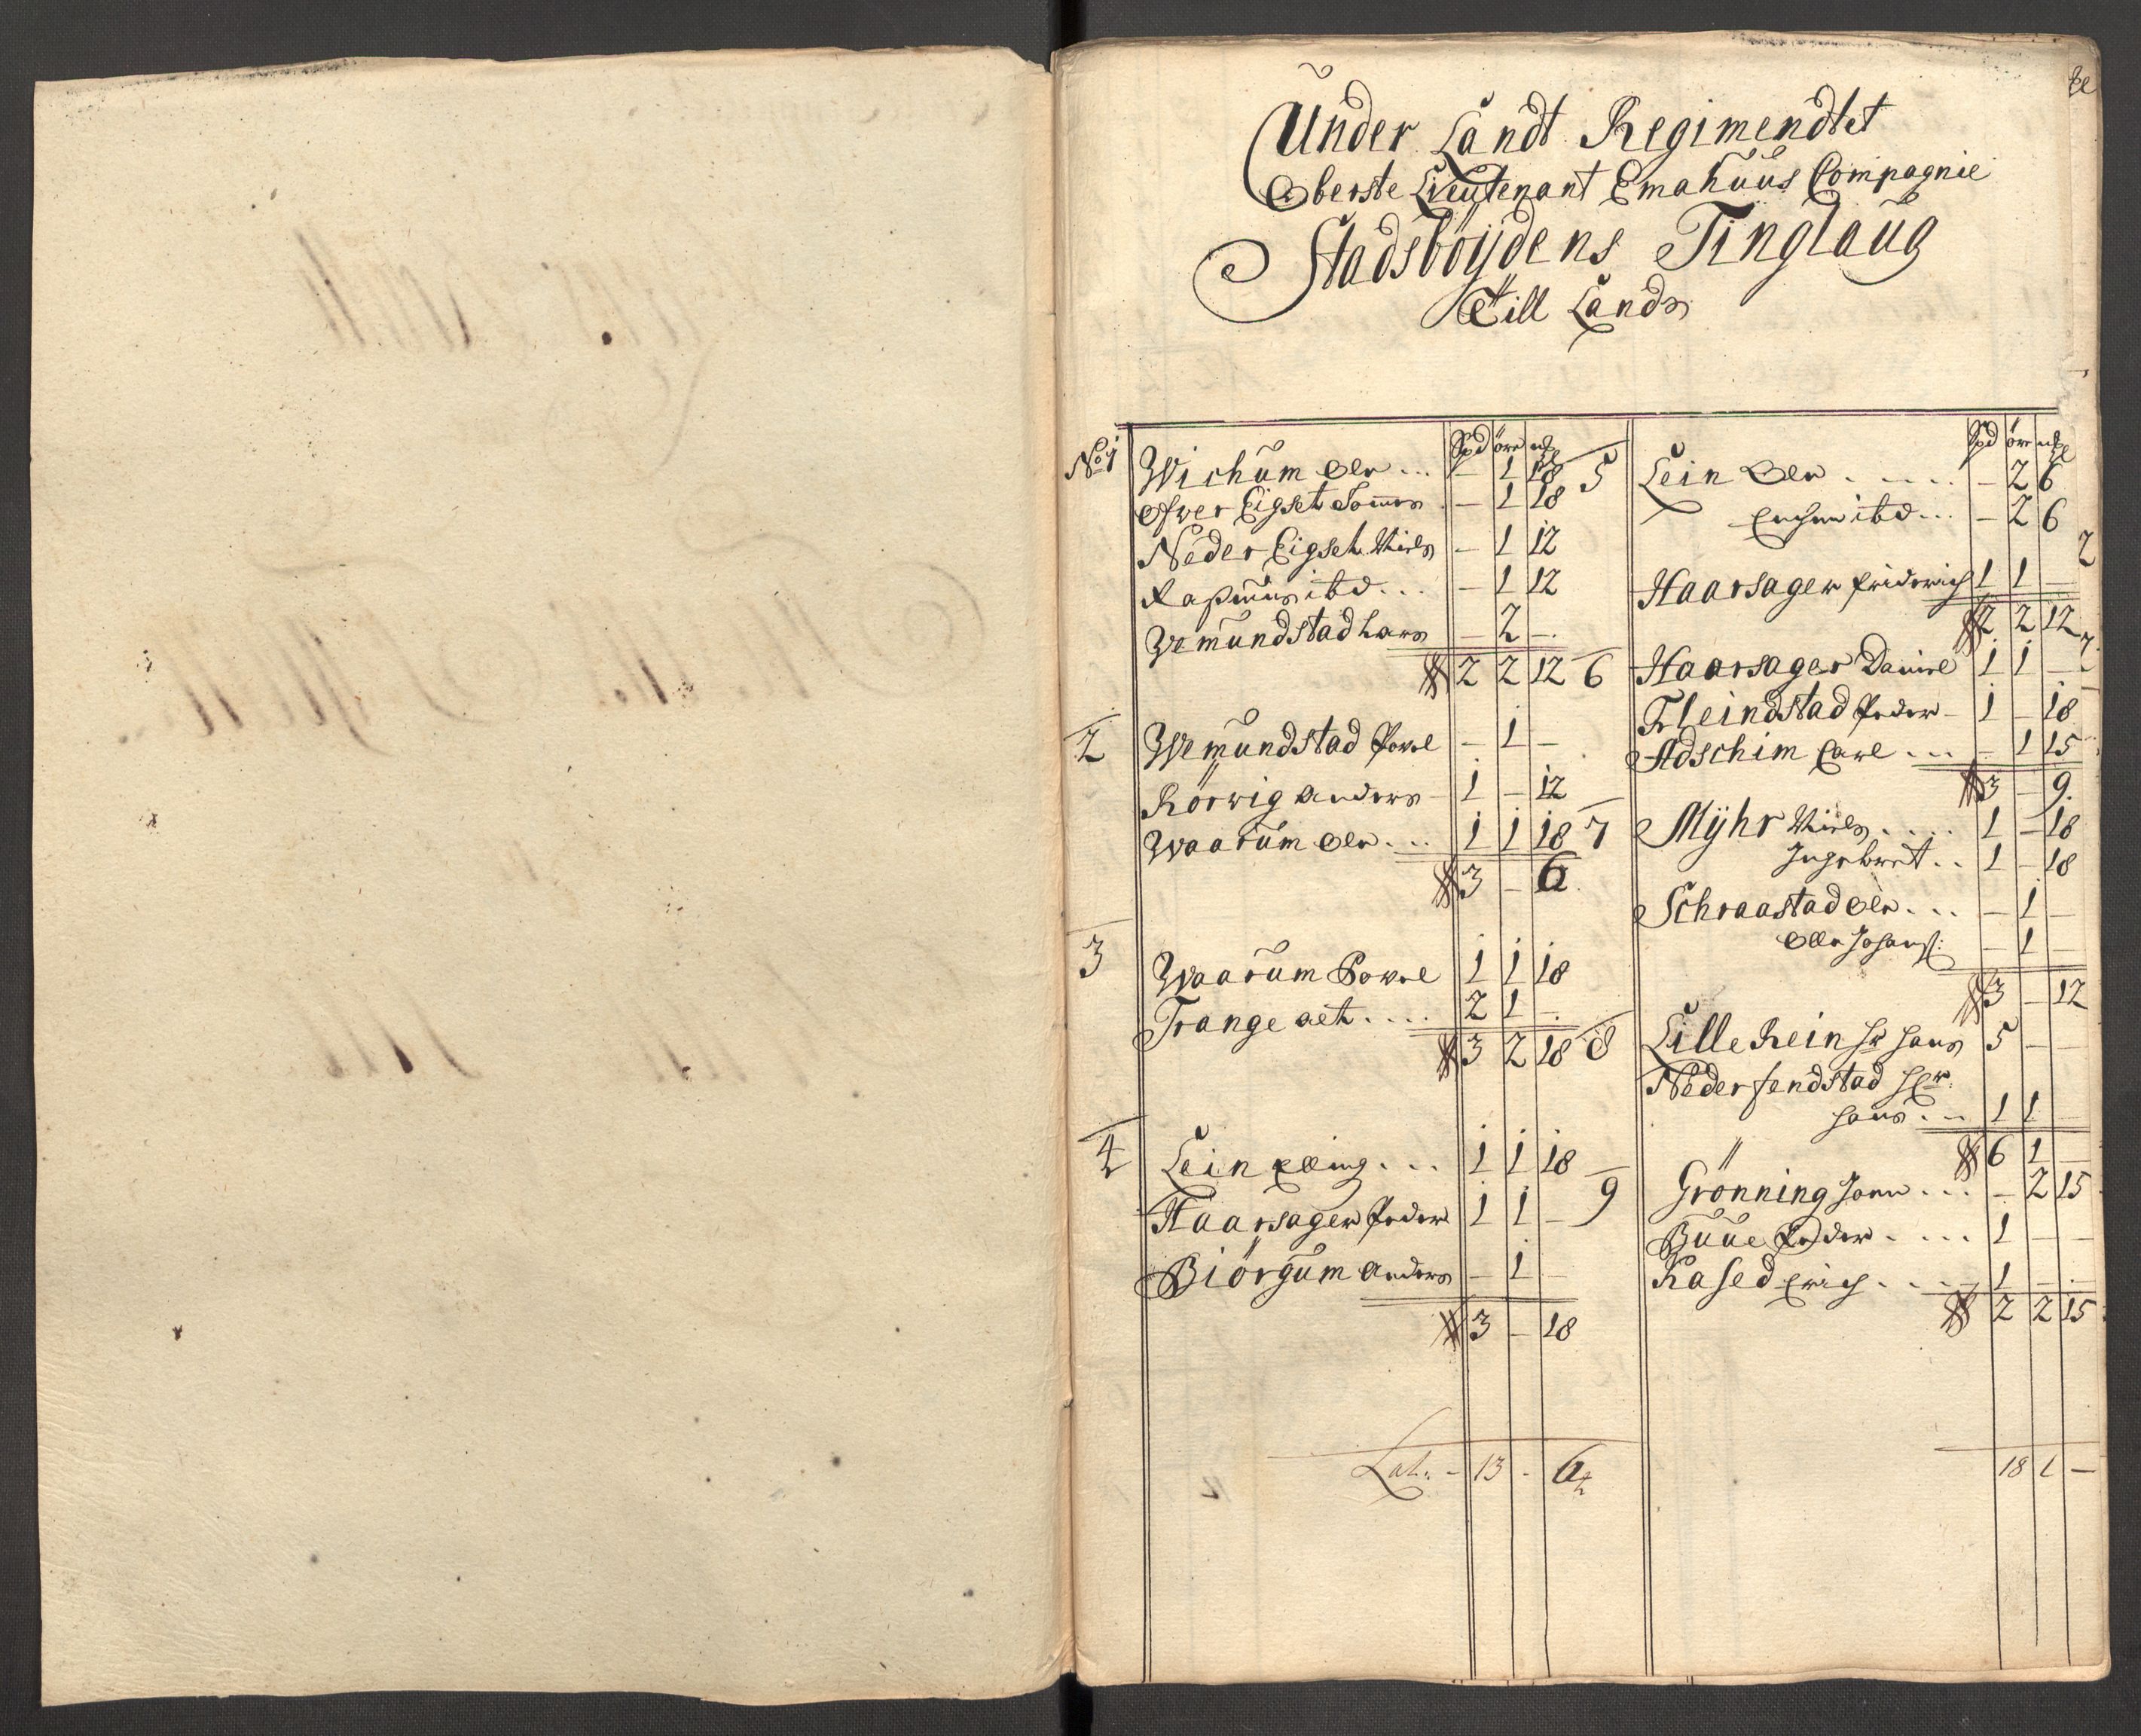 Under Landt Regimendtet
Oberste Lieutenant Emahuus Compagnie
Stadsböijdens Tinglaug
Till Lands
No 1
Spd öre mk
Wichum Ole ... – 1 18
Ofver Eigset – 1 18
Neder Eigset Niels – 1 12
Rasmus ibd ... – 1 12
Wemundstad Lars – 2 –
2 2 12
2
Wemundstad Powel – 1 –
Rörwig Anders – 1 – 12
Waarum Ole ... 1 1 18
3 – 6
3
Waarum Powel 1 1 18
Trange aet .... 2 1 –
3 2 18
4
Lein Elling ... 1 1 18
Haarsager Peder 1 1 –
Biörgum Anders – 1 –
3 – 18
Lat: – 13 – 6
Spd öre mk
5
Lein Ole ..... – 2 6
ibd ... – 2 6
Haarsager Friderich 1 1 –
2 2 12
6
Haarsager Daniel 1 1 –
Fleindstad Peder – 1 – 18
Adschim Carl ... – 1 15
3 – 9
7
Mÿhr Niels .... 1 – 18
Ingebret .. 1 – 18
Schraastad Ole ... – 1 –
Olle Johans: – 1 –
3 – 12
8
Lille Rein Hr Hans 5 – –
Neder fendstad
Hans ... 1 1 –
6 1 –
9
Grönning John ... – 2 15
Buue Peder .... 1 – –
Rased Erich .... 1 – –
2 2 15
18 1 –